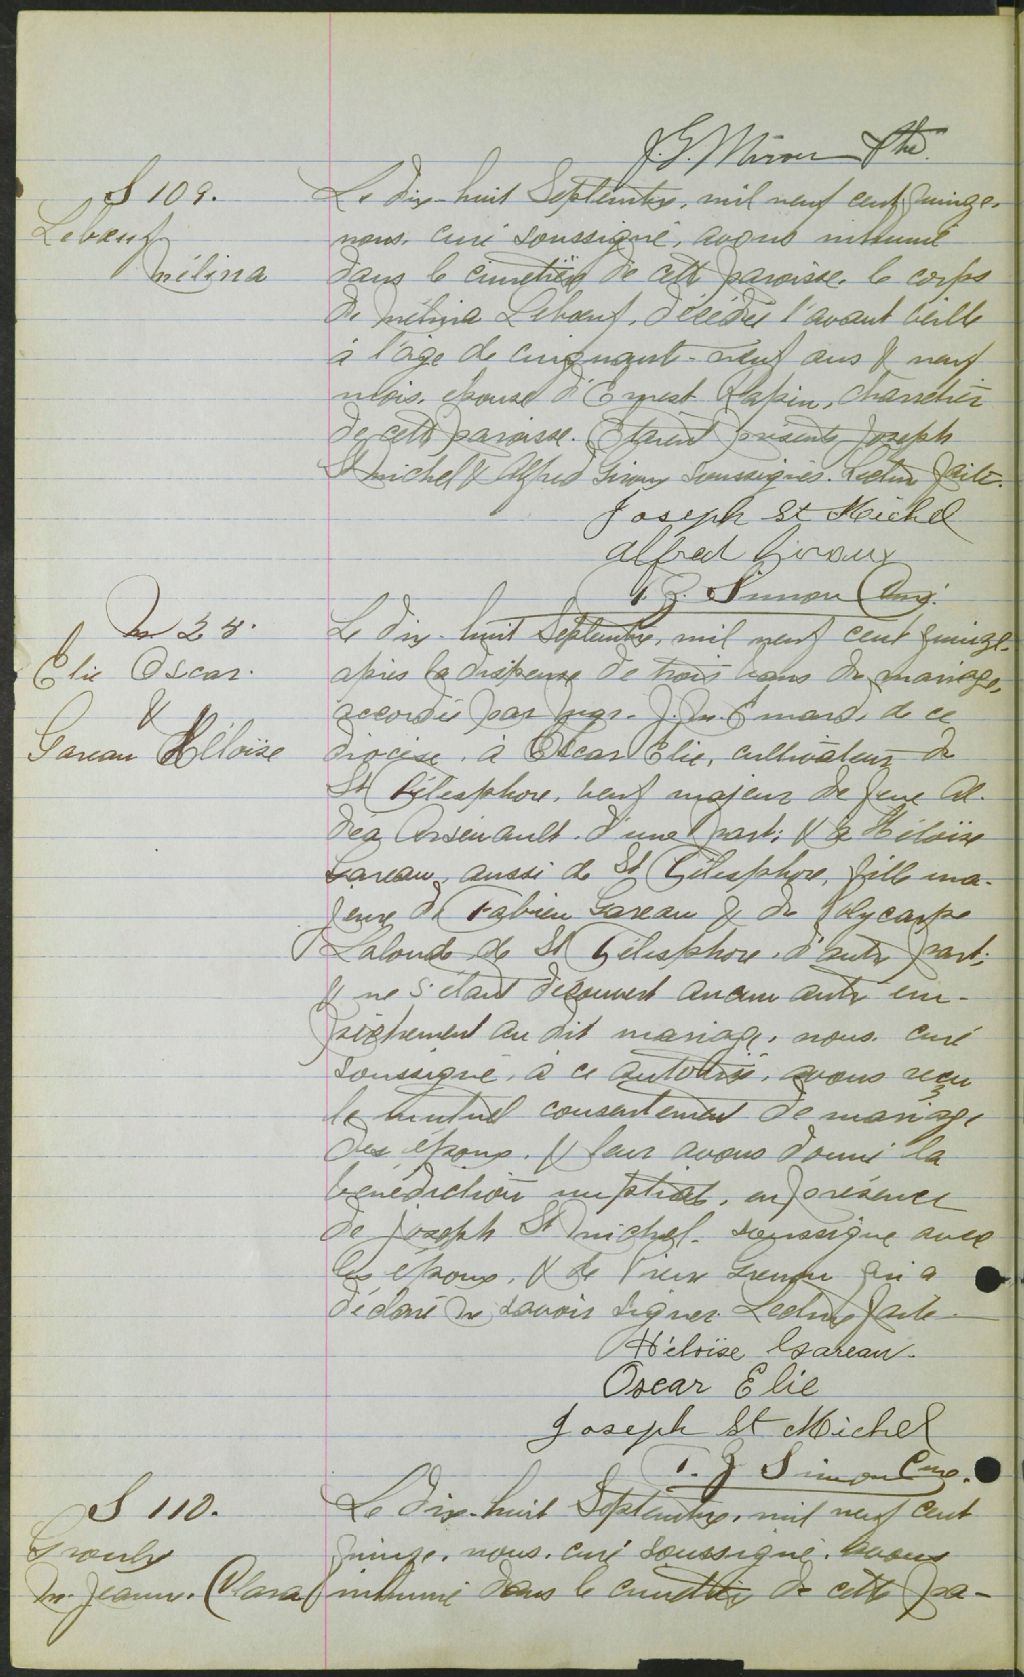 J. G. Ptre
S 109.
Leboeuf
Mélina
Le dix-huit Septembre, mil neuf cent quinze,
nous, curé soussigné, avons inhumé
dans le cimetière de cette paroisse, le corps
de Mélina Leboeuf, décédée l'avant veille
à l'âge de cinquante-neuf ans & neuf
mois, épouse d'Ernest Lapin, charretier
de cette paroisse. Etaient présents Joseph
St Michel & Alfred Giroux soussignés. Lecture faite.
Joseph St Michel
Alfred Giroux
T. Z. Simon Curé.
M 28.
Elie Oscar.
&
Gareau Héloïse
Le dix-huit Septembre, mil neuf cent quinze,
après la dispense de trois bans de mariage,
accordée par Mgr. J. M. Emard, de ce
diocèse, à Oscar Elie, cultivateur de
St Télesphore, veuf majeur de feue Al-
déa Arsenault, d'une part; & à Héloïse
Gareau, aussi de St Télesphore, fille ma-
jeure de Fabien Gareau & de Polycarpe
Lalonde de St Télesphore, d'autre part;
& ne s'étant découvert aucun autre em-
pêchement au dit mariage, nous, curé
soussigné, à ce autorisé, avons reçu
le mutuel consentement de mariage
des époux, & leur avons donné la
bénédiction nuptiale, en présence
de Joseph St Michel, soussigné avec
les époux, & de qui a
déclaré ne savoir signer. Lecture faite.
Héloïse Gareau.
Oscar Elie
Joseph St Michel
T. Z Simon Curé.
S 110.
Groulx
M. Jeanne. Clara
Le dix-huit Septembre, mil neuf cent
quinze, nous, curé soussigné, avons
inhumé dans le cimetière de cette pa-